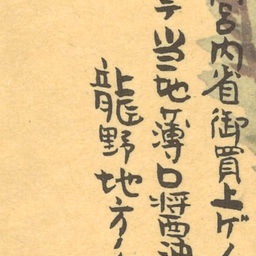 宮内省御買上ゲノ
当地薄口醤油
龍野地方ノ